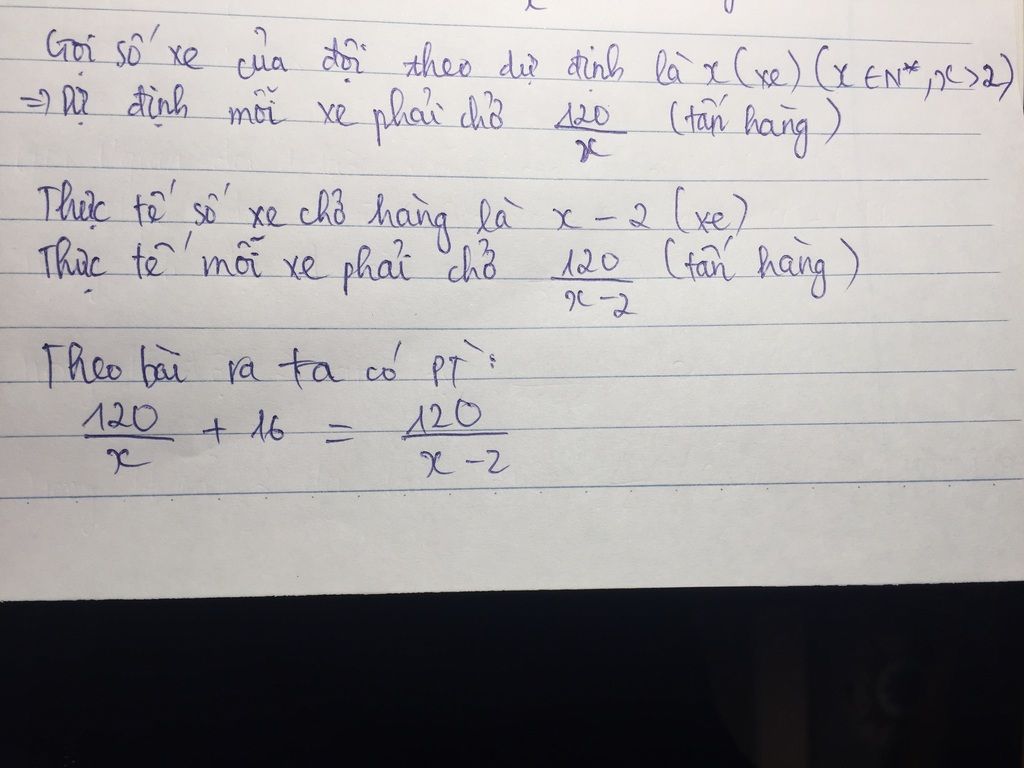 Gọi số xe của đội theo dự định là x (xe) (x ∈ N*, x > 2)
=> Dự định mỗi xe phải chở 120/x (tấn hàng)
Thực tế số xe chở hàng là x - 2 (xe)
Thực tế mỗi xe phải chở 120/(x-2) (tấn hàng)
Theo bài ra ta có PT:
120/x + 16 = 120/(x-2)